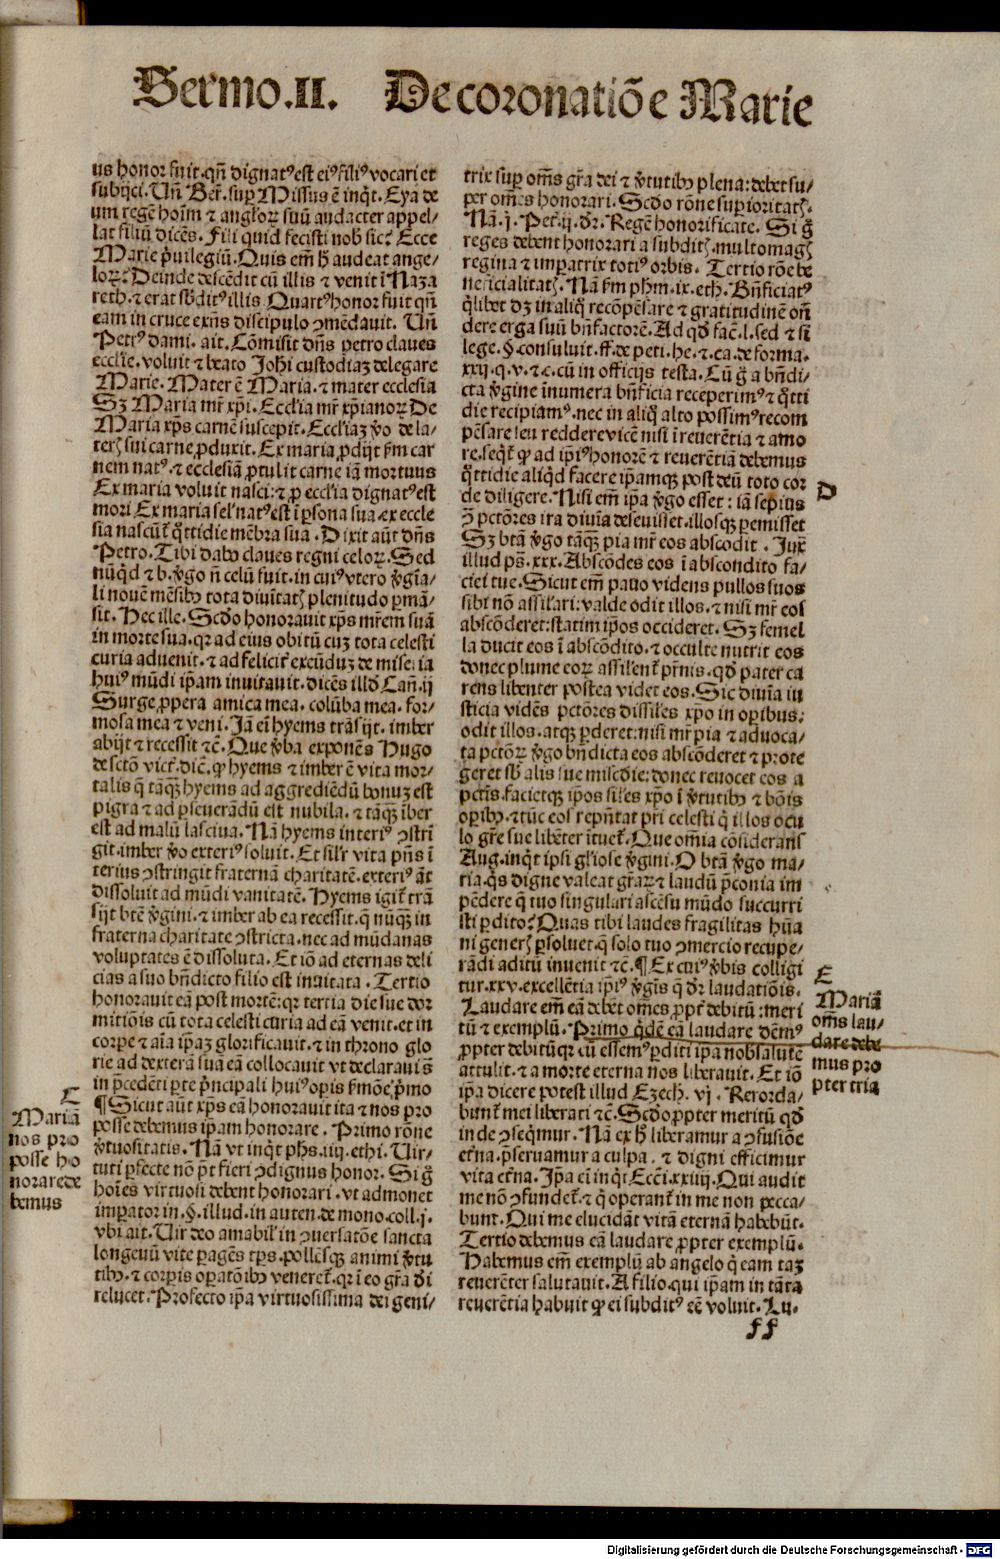 Sermo.II. De coronatiōe Marie
us honor fuit.qn̄ dignatꝰ est eiꝰ filiꝰ vocari et
subijci.Un̄ Ber̄.suꝑ Missus ē inq̇t. Eya de
um regē hoīm ⁊ angloꝝ suū audacter appel/
lat filiū dicēs. Fili quid fecisti nob̄ sic? Ecce
Marie pͥuilegiū.Quis em̄ h̄ audeat ange/
loꝝ? Deinde descēdit cū illis ⁊ venit ī Naza
reth.⁊ erat sb̄ditꝰ illis Quartꝰ honor fuit qn̄
eam in cruce exn̄s discipulo ꝯmēdauit. Un̄
Petꝰ dami. ait. Cōmisit dn̄s petro claues
eccl̄ie.voluit ⁊ beato Joh̄i custodiaꝫ delegare
Marie. Mater ē Maria.⁊ mater ecclesia
Sꝫ Maria mr̄ xp̄i. Eccl̄ia mr̄ xp̄ianoꝝ De
Maria xp̄s carnē suscepit. Eccl̄iaꝫ ꝟo de la/
teꝝ sui carne ꝓduxit. Ex maria ꝓdijt ẜm car
nem natꝰ.⁊ ecclesiā ꝓtulit carne iā mortuus
Ex maria voluit nasci:⁊ ꝓ eccl̄ia dignatꝰ est
mori Ex maria sel̓ natꝰ est ī ꝑsona sua.ex eccle
sia nascūt̄ q̇ttidie mēbra sua .Dixit aūt dn̄s
Petro. Tibi dabo claues regni celoꝝ. Sed
nūq̇d ⁊ b.ꝟgo n̄ celū fuit.in cuiꝰ vtero ꝟgīa/
li nouē mēsibꝰ tota diuītatꝭ plenitudo ꝑmā/
sit. Hec ille. Scd̄o honorauit xp̄s mr̄em suā
in morte sua.qꝛ ad eius obitū cuꝫ tota celesti
curia aduenit.⁊ ad felicit̄ exeūduꝫ de miseria
huiꝰ mūdi ip̄am inuitauit.dicēs illd̄ Can̄.ij
Surge ꝓpera amica mea. colūba mea. for/
mosa mea ⁊ veni. Jā ei hyems trāsijt. imber
abijt ⁊ recessit ⁊c̄.Que ꝟba exponēs Hugo
de sctō vict̄.dic̄.ꝙ hyems ⁊ imber ē vita mor/
talis q̄ tāqꝫ hyems ad aggrediēdū bonuꝫ est
pigra ⁊ ad ꝑseuerādū est nubila.⁊ tāqꝫ īber
est ad malū lasciua. Nā hyems interiꝰ ꝯstrī
git.imber ꝟo exteriꝰ soluit. Et sil̓r vita pn̄s ī
teriꝰ ꝯstringit fraternā charitatē.exteriꝰ aūt
dissoluit ad mūdi vanitatē. Hyems igit̄ trā
sijt btē ꝟgini.⁊ imber ab ea recessit.q̄ nūqꝫ in
fraterna charitate ꝯstricta.nec ad mūdanas
voluptates ē dissoluta. Et iō ad eternas deli
cias a suo bn̄dicto filio est inuitata . Tertio
honorauit eā post mortē:qꝛ tertia die sue dor
mitiōis cū tota celesti curia ad eā venit.et in
corpe ⁊ aīa ip̄aꝫ glorificauit.⁊ in throno glo
rie ad dexterā sua eā collocauit vt declaraui s̄
in p̄cedēti ꝑte pͥncipali huiꝰ opis ẜmōe pͥmo
¶ Sicut aūt xp̄s eā honorauit ita ⁊ nos pro
posse debemus ip̄am honorare . Primo rōne
ꝟtuositatis. Nā vt inq̇t phs.iiij.ethi. Uir/
tuti ꝑfecte nō pōt fieri ꝯdignus honor. Si g̊
hoīes virtuosi debent honorari .vt admonet
imꝑator in.§.illud.in auten.de mono.coll.j.
vbi ait. Uir deo amabil̓ in ꝯuersatōe sancta
longeuū vite ꝑagēs tp̄s.pollēsqꝫ animi ꝟtu
tibꝰ.⁊ corpis oꝑatōibꝰ veneret̄.qꝛ ī eo gr̄a dei
relucet. Profecto ip̄a virtuosissima dei geni/
E
Mariā
nos pro
posse ho
norare de
bemus
trix suꝑ om̄s gr̄a dei ⁊ ꝟtutibꝰ plena:debet su/
per om̄es honorari. Scd̄o rōne suꝑioritatꝭ.
Nā .j. Pet̄.ij.dr̄. Regē honorificate. Si g̊
reges debent honorari a subditꝭ.multomagꝭ
regina ⁊ imꝑatrix totiꝰ orbis. Tertio rōe be
neficialitatꝭ. Nā ẜm ph̄m.ix.eth. Bn̄ficiatꝰ
q̇libet dꝫ in aliq̊ recōpēsare ⁊ gratitudinē on̄
dere erga suū bn̄factorē.Ad qd̄ fac̄.l.sed ⁊ si
lege.§.consuluit.ff.de peti.he.⁊.ca.de forma.
xxij.q.v.⁊.c.cū in officijs testa. Cū g̊ a bn̄di/
cta ꝟgine īnumera bn̄ficia receperimꝰ ⁊ q̊tti
die recipiamꝰ.nec in aliq̊ alto possimꝰ recom
pēsare seu reddere vicē nisi ī reuerētia ⁊ amo
re.seqt̄ ꝙ ad ip̄iꝰ honorē ⁊ reuerētiā debemus
q̊ttidie aliq̇d facere ip̄amqꝫ post deū toto cor
de diligere. Nisi em̄ ip̄a ꝟgo esset : iā sepius
ꝯ pctōres ira diuīa deseuisset.illosqꝫ ꝑemisset
Sꝫ btā ꝟgo tāqꝫ pia mr̄ eos abscodit . Juxͣ
illud ps̄.xxx.Abscōdes eos ī abscondito fa/
ciei tue. Sicut em̄ pauo videns pullos suos
sibi nō assil̓ari:valde odit illos.⁊ nisi mr̄ eos
abscōderet:statim ip̄os occideret. Sꝫ femel
la ducit eos ī abscōdito.⁊ occulte nutrit eos
donec plume eoꝝ assilent̄ pr̄nis.qd̄ pater ca
rens libenter postea videt eos. Sic diuīa iu
sticia vidēs pctōres dissiles xp̄o in oꝑibus:
odit illos.atqꝫ ꝑderet:nisi mr̄ pia ⁊ aduoca/
ta pctōꝝ ꝟgo bn̄dicta eos abscōderet ⁊ prote
geret sb̄ alis sue mīscd̄ie:donec reuocet eos a
pctīs.facietqꝫ ip̄os siles xp̄o ī ꝟtutibꝰ ⁊ bōis
oꝑibꝰ.⁊ tūc eos rep̄ntat pr̄i celesti q̇ illos ocu
lo gr̄e sue libēter ītuet̄. Que om̄ia cōsiderans
Aug.inq̇t ip̄si gl̓iose ꝟgini. O btā ꝟgo ma/
ria.q̇s digne valeat gr̄aꝝ ⁊ laudū p̄conia im
pēdere q̄ tuo singulari ascēsu mūdo succurri
sti ꝑdito? Quas tibi laudes fragilitas hūa
ni generꝭ ꝑsoluet.q̄ solo tuo ꝯmercio recuꝑe/
rādi aditū inuenit ⁊c̄. ¶ Ex cuiꝰ ꝟbis colligi
tur.xxv.excellētia ip̄iꝰ ꝟgīs q̄ dr̄ laudatiōis.
Laudare em̄ eā debēt om̄es ꝓpt̄ debitū:meri
tū ⁊ exemplū. Primo q̇dē eā laudare dēmꝰ
ꝓpter debitū:qꝛ cū essemꝰ ꝑditi ip̄a nob̄ salutē
attulit.⁊ a morte eterna nos liberauit. Et iō
ip̄a dicere potest illud Ezech. vj . Recorda/
bunt̄ mei liberati ⁊c̄. Scd̄o ꝓpter meritū qd̄
inde ꝯseq̇mur. Nā ex h̄ liberamur a ꝯfusiōe
et̄na.p̄seruamur a culpa . ⁊ digni efficimur
vita et̄na. Ip̄a ei inq̇t Eccī.xxiiij.Qui audit
me nō ꝯfundet̄.⁊ q̇ operant̄ in me non pecca/
bunt. Qui me elucidāt vitā eternā habebūt.
Tertio debemus eā laudare ꝓpter exemplū.
Habemus em̄ exemplū ab angelo q̇ eam taꝫ
reuerēter salutauit. A filio.qui ip̄am in tāta
reuerētia habuit ꝙ ei subditꝰ eē voluit. Lu.
ff
D
E
Mariā
om̄s lau/
dare debe
mus pro
pter tria
Digitalisierung gefördert durch die Deutsche Forschungsgemeinschaft - DFG